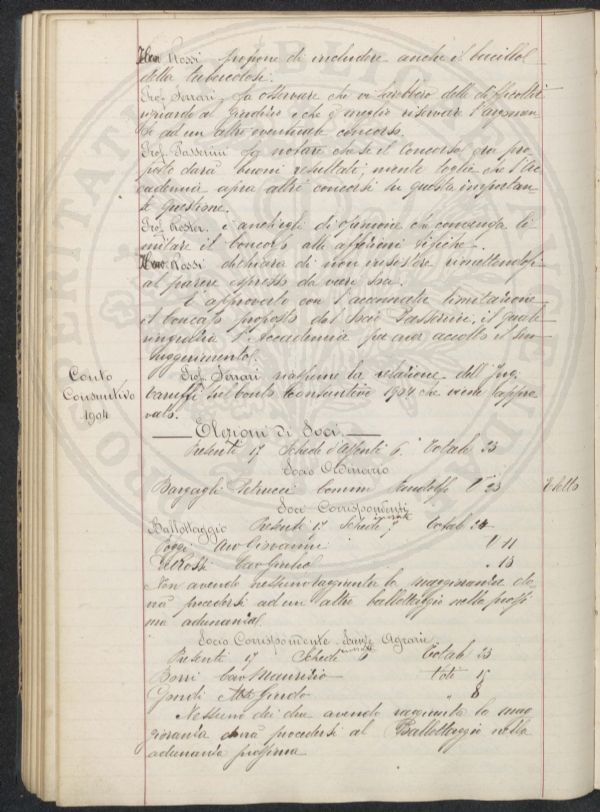 Rossi propone di includere anche il bacillo
della tubercolosi.
Prof. Ferrari fa osservare che vi sarebbero delle difficoltà
riguardo al giudizio e che è meglio riservare l'argomen-
to ad un altro eventuale concorso.
Prof. Passerini fa notare che se il Concorso ora pro-
posto darà buoni resultati, niente toglie che l'Ac-
cademia apra altri concorsi in questa importan-
te questione.
Prof. Roster è anch'egli di opinione che convenga li-
mitare il concorso alle affezioni tifiche.
Rossi dichiara di non insistere rimettendosi
al parere espresso da vari Soci.
È approvato con l'accennata limitazione
il concorso proposto dal Socio Passerini, il quale
ringrazia l'Accademia per aver accolto il suo
suggerimento.
Conto
Consuntivo
1904
Prof. Ferrari riassume la relazione dell'Ing.
sul conto Consuntivo 1904 che viene appro-
vato.
Elezioni di Soci
Presenti 17 Schede d'Assenti 6. Totale 23
Socio Ordinario
Bargagli Petrucci Comm 23 Eletto
Soci Corrispondenti
Ballottaggio Presenti 17 Schede inviate 7 Totale 24
Poggi Giovanni 11
Del Rossi Giulio 13
Non avendo nessuno raggiunto la maggioranza do-
vrà procedersi ad un altro ballottaggio nella prossi-
ma adunanza.
Socio Corrispondente Scienze Agrarie
Presenti 17 Schede inviate 6 Totale 23
Borri Maurizio Voti 15
Gondi Guido " 8
Nessuno dei due avendo raggiunta la mag-
gioranza dovrà procedersi al Ballottaggio nella
adunanza prossima